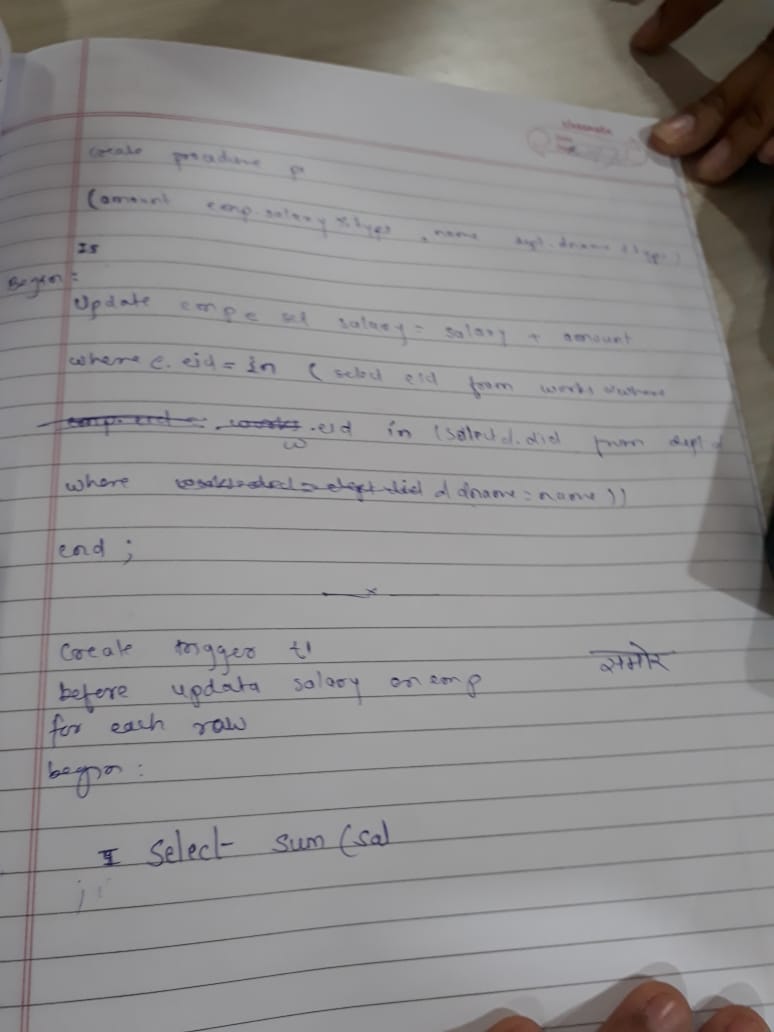 classmate
create procedure p
(amount emp.salary %type, name dept.dname %type)
IS
Begin:
Update emp e set salary = salary + amount
where e.eid = in (select eid from works where
w.eid in (select d.did from dept d
where d dname = name))
end;
x
Create trigger t1
before updata salary on emp
for each raw
begin:
समोर
I Select sum (sal